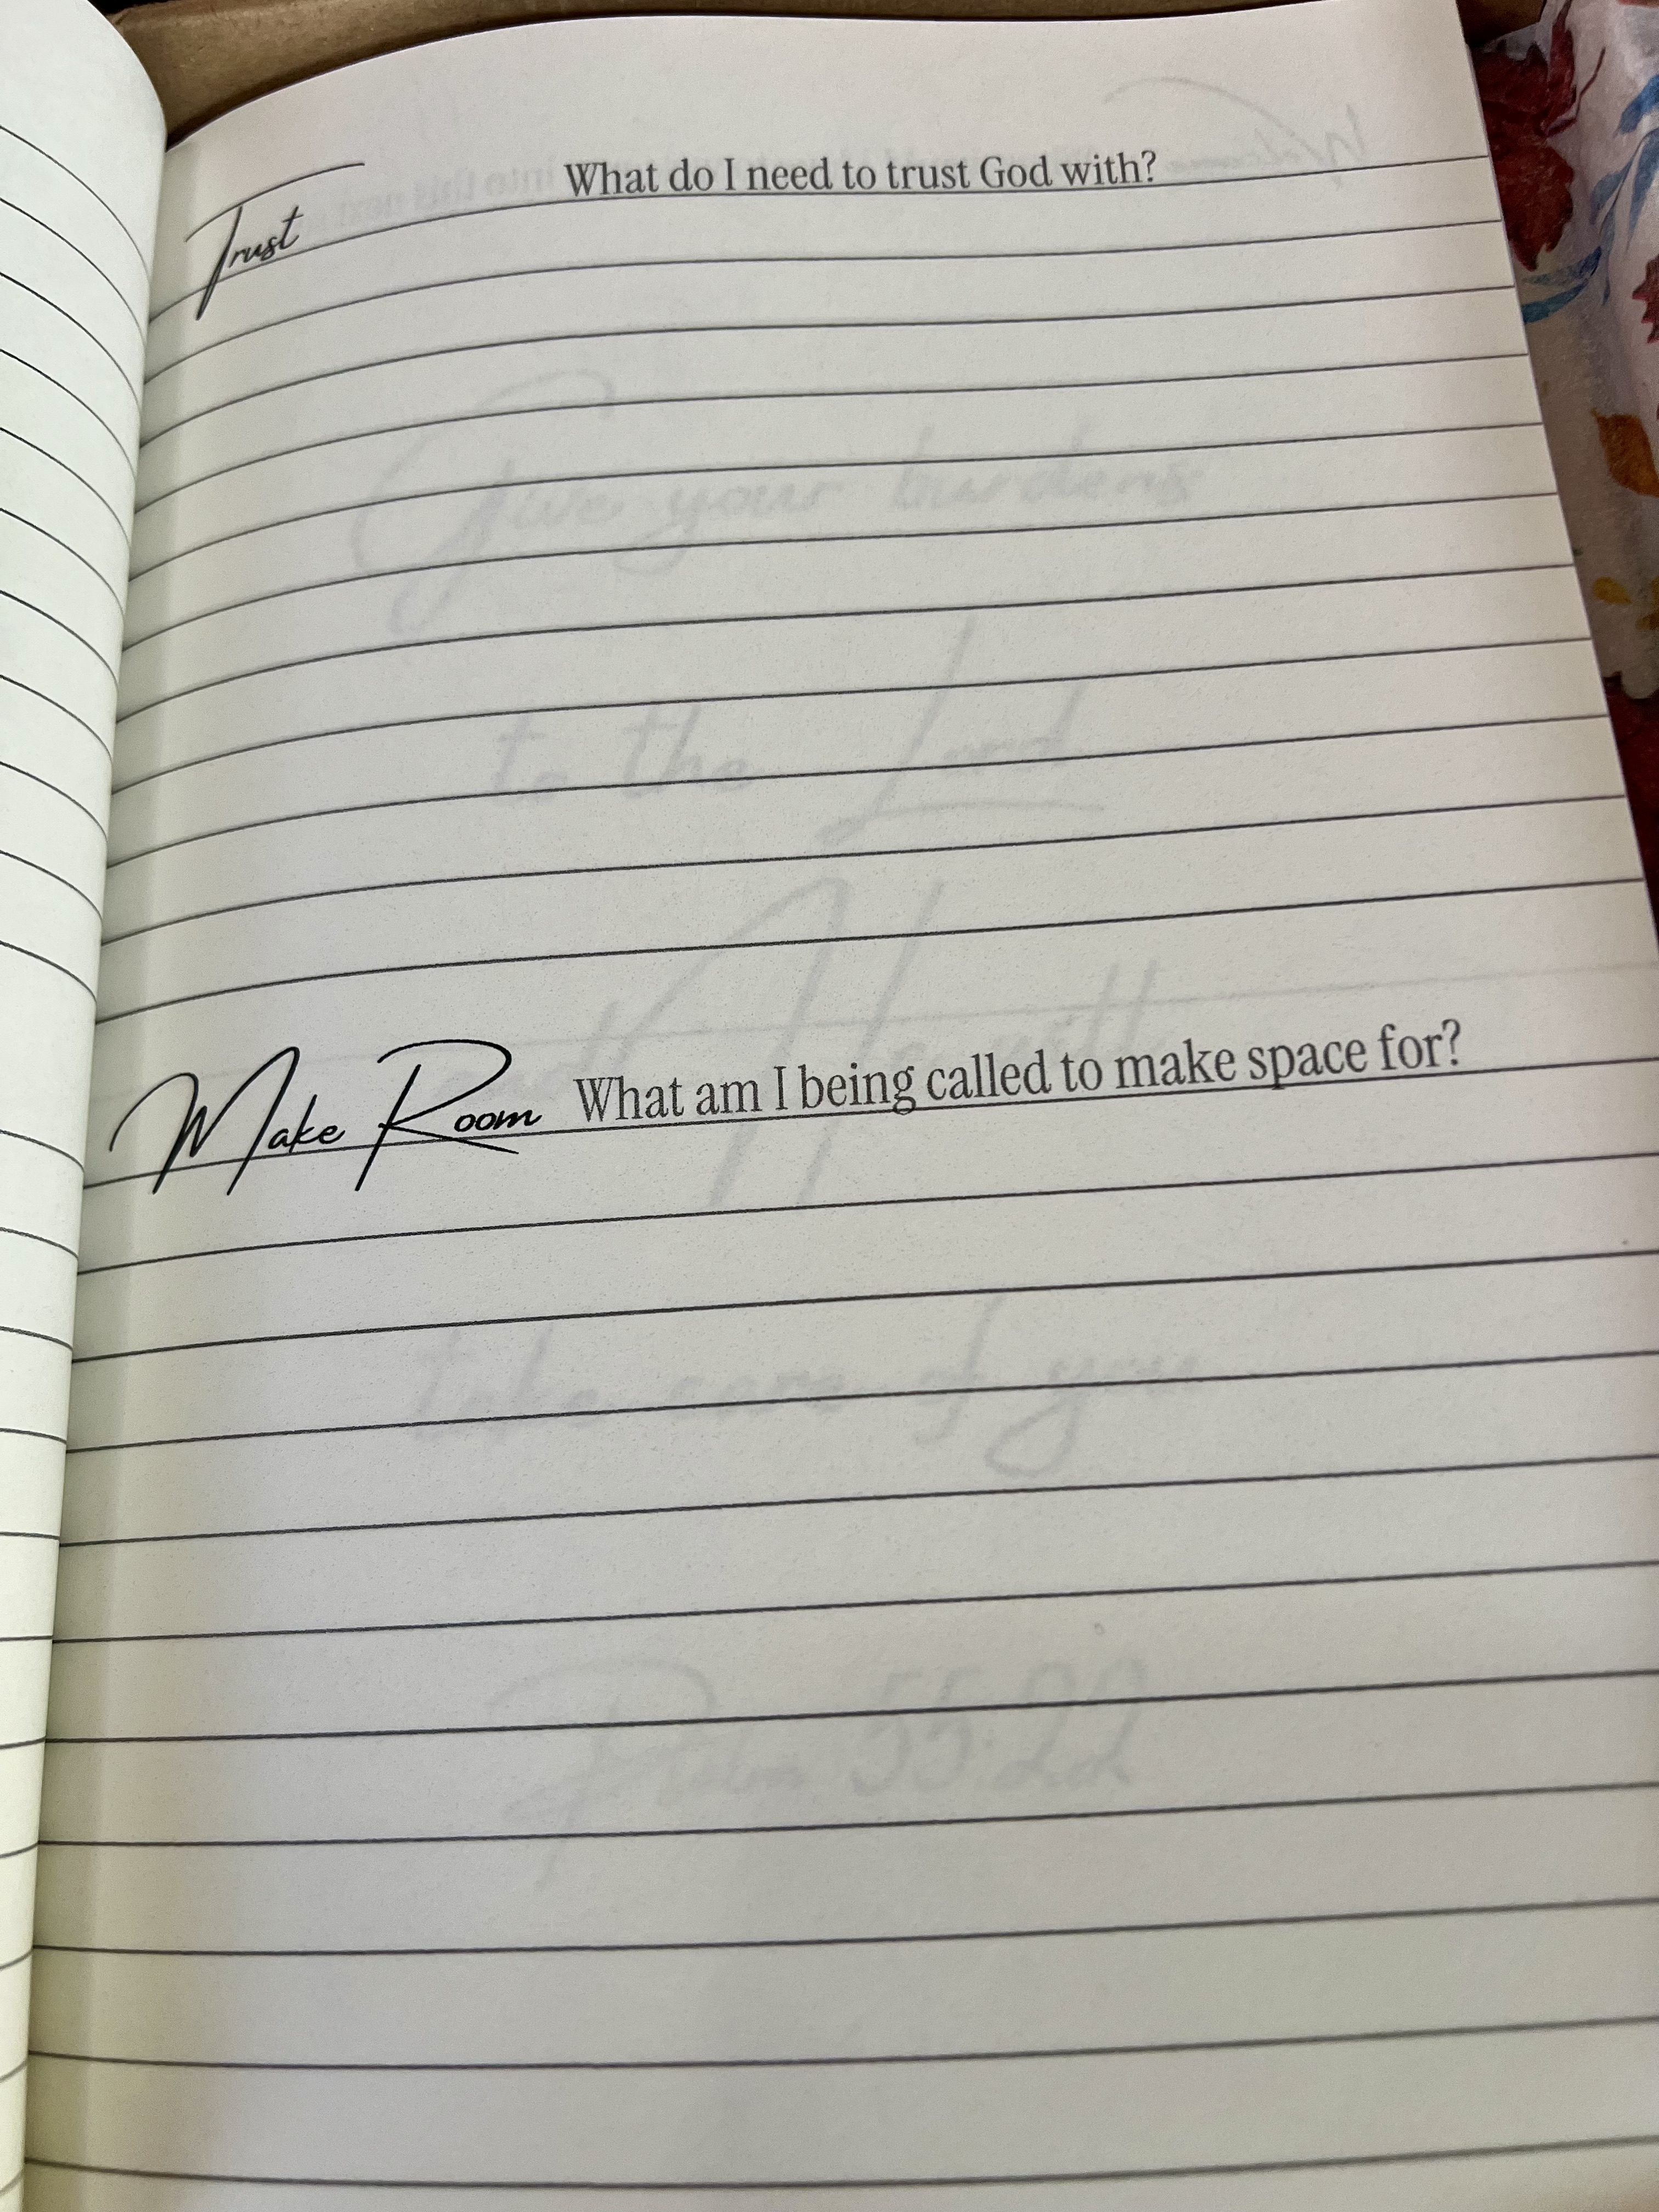 Trust What do I need to trust God with?
Give your burdens
to the Lord
and He will
Make Room What am I being called to make space for?
take care of you
Psalm 55:22